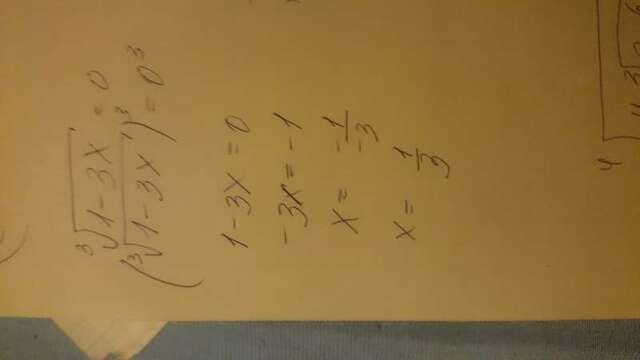 ∛(1-3x) = 0
(∛(1-3x))³ = 0³
1-3x = 0
-3x = -1
x = -1/-3
x = 1/3